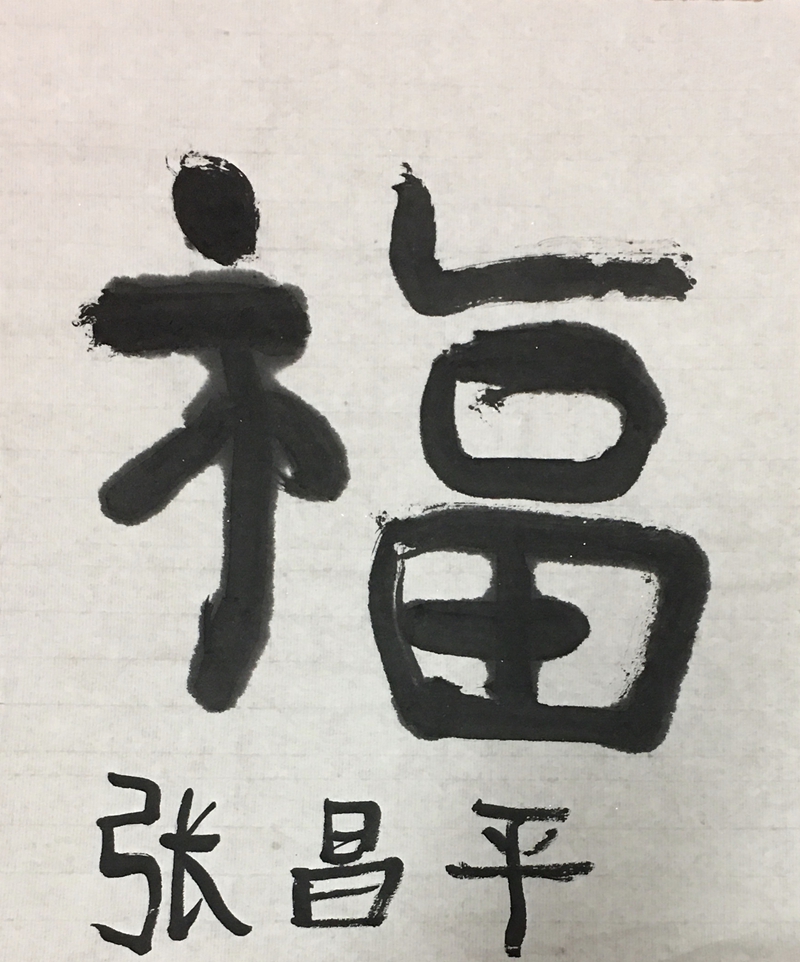 福
张昌平